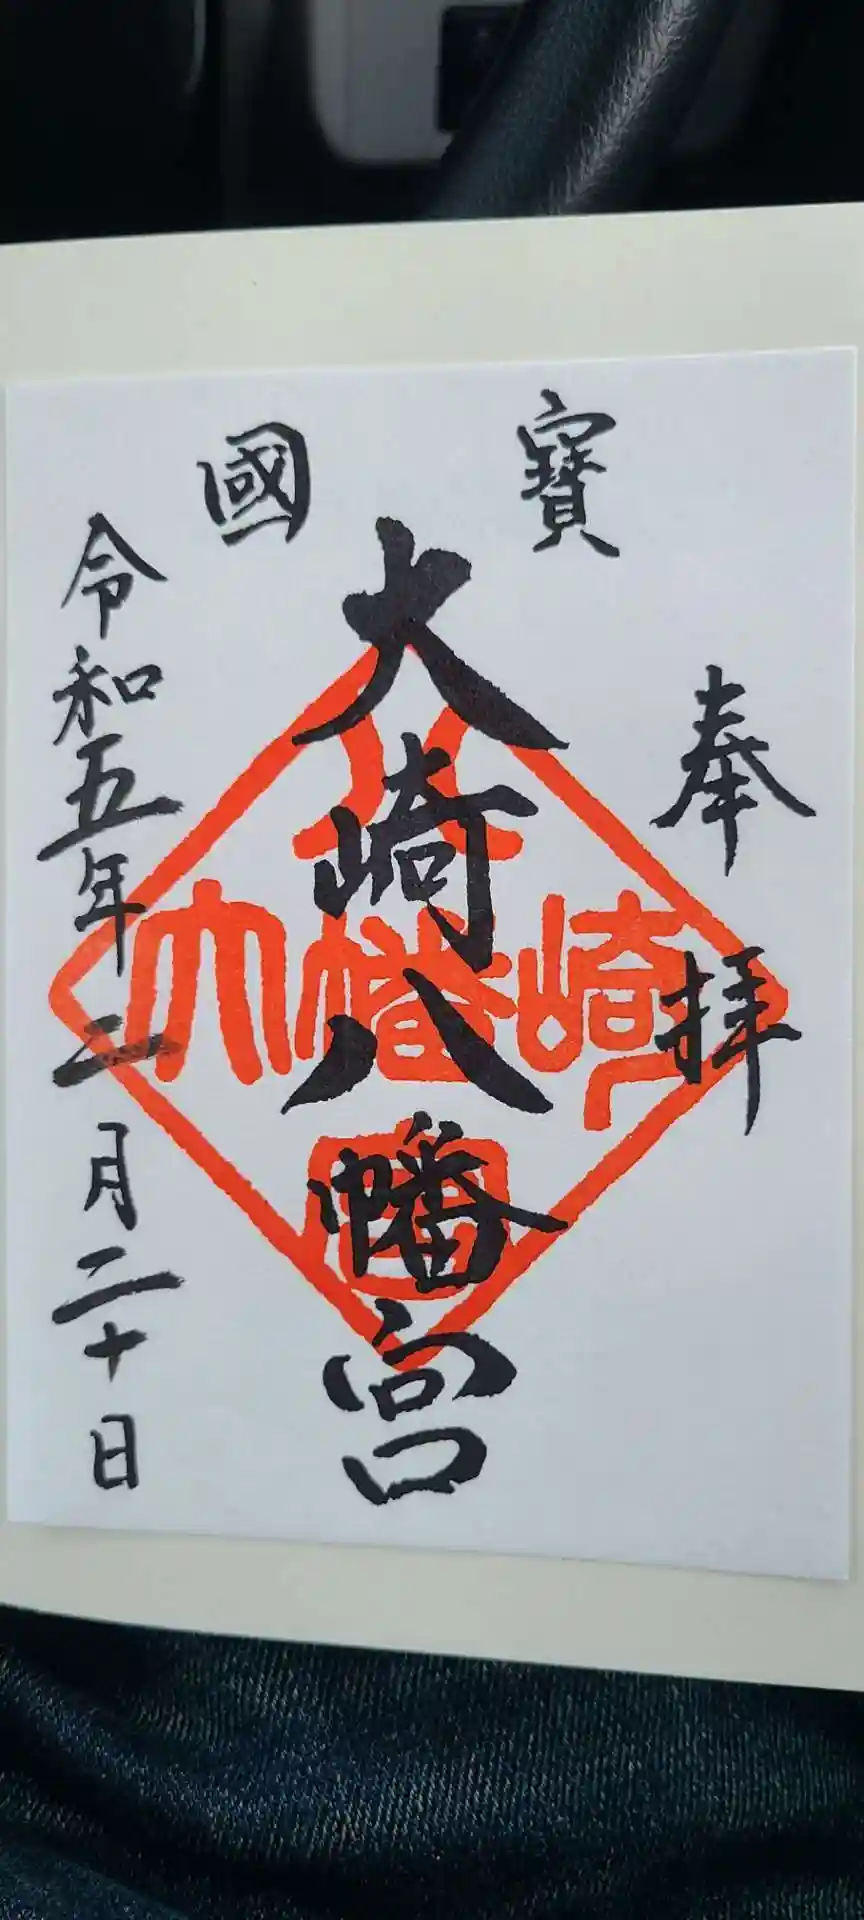 國寳
奉拝
大崎八幡宮
令和五年二月二十日
大崎八幡宮